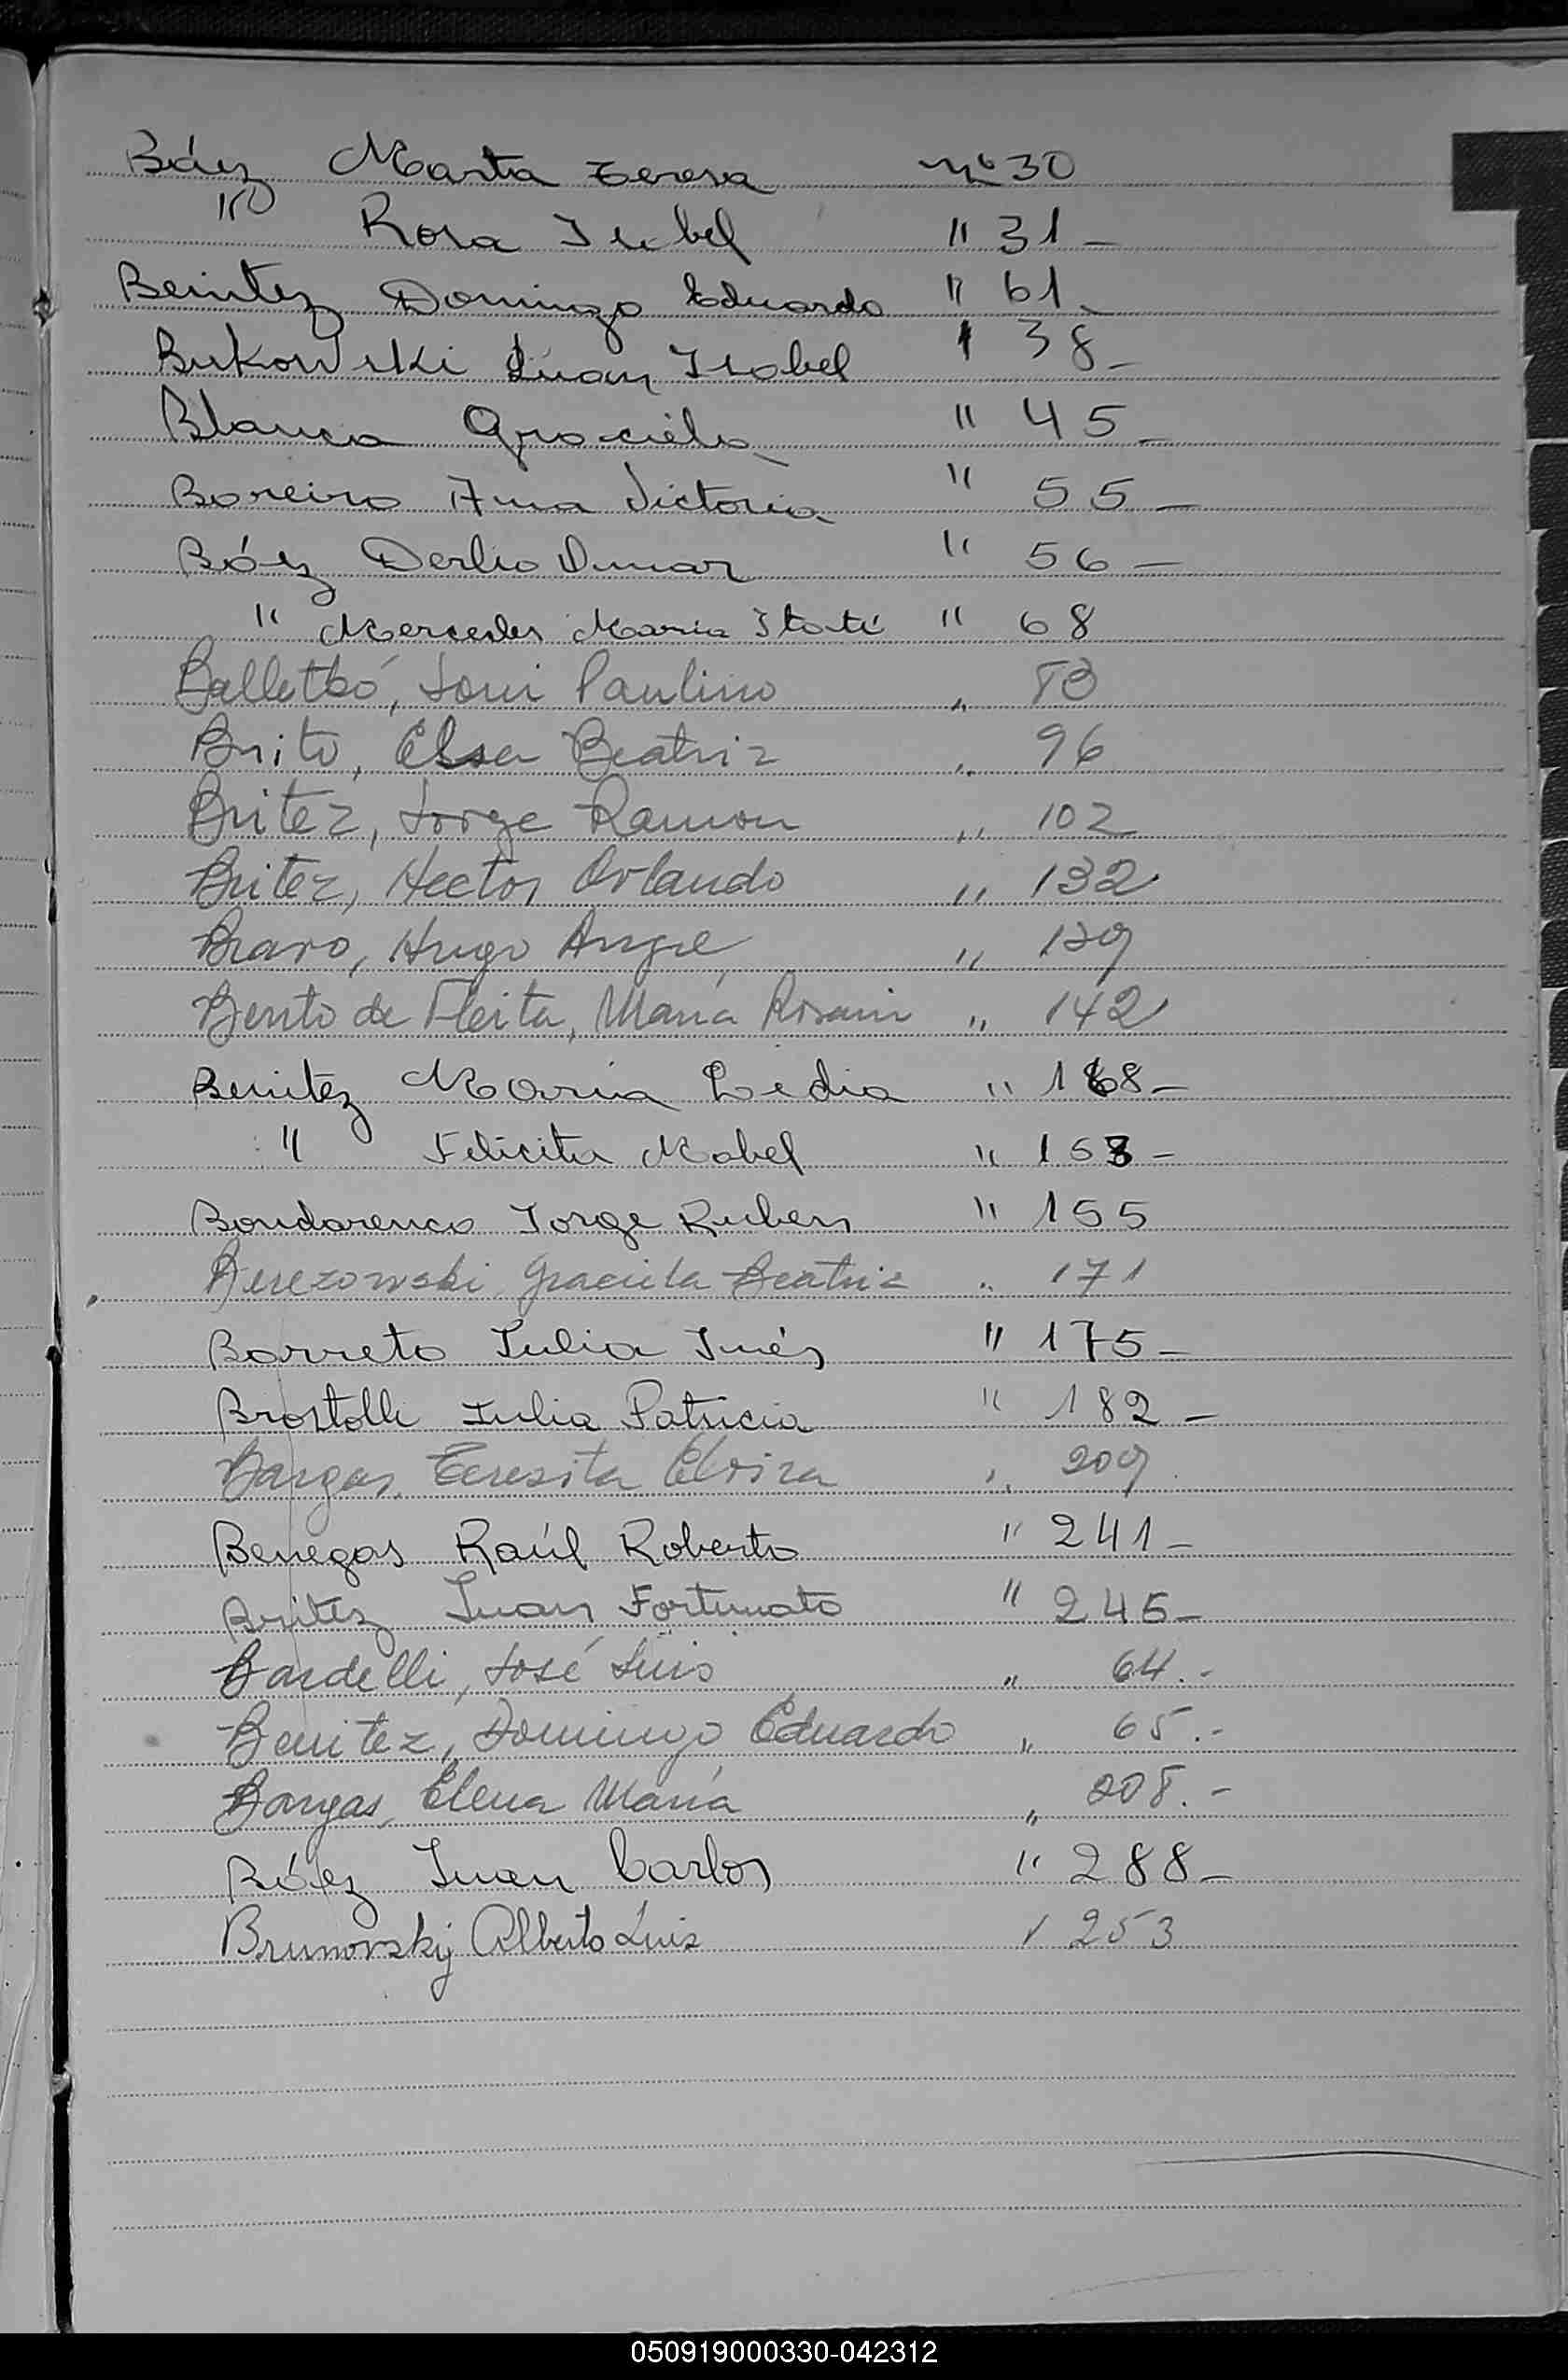 Báez Marta Teresa nº 30
" Rosa Isabel " 31 -
Benitez Domingo Eduardo " 61 -
Bukowski Juan Isabel " 38 -
Blanca Graciela " 45 -
Boreiro Ana Victoria " 55 -
Báez Derlio Omar " 56 -
" Mercedes Maria Itatí " 68
Balletbó, Paulino " 83
Brito, Elsa Beatriz " 96
Britez, Jorge Ramon " 102
Britez, Hector Orlando " 132
Bravo, Hugo Angel " 139
Bento de Fleita, María " 142
Benitez Maria Ledia " 168 -
" Felicita Mabel " 158 -
Bondarenco Jorge Ruben " 155
Berezowski Graciela Beatriz " 171
Barreto Julia Inés " 175 -
Brostolli Julia Patricia " 182 -
Bargas, Teresita Elvira " 209
Benegas Raúl Roberto " 241 -
Britez Juan Fortunato " 245 -
Bardelli, José Luis " 64.-
Benitez, Domingo Eduardo " 65.-
Bargas, Elena María " 208.-
Báez Juan Carlos " 288 -
Brunovskij Alberto Luis " 253
050919000330-042312